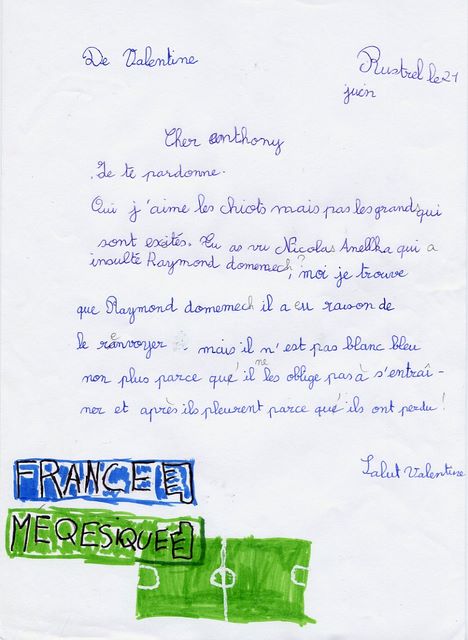 De Valentine
Rustrel le 21
juin
Cher anthony
Je te pardonne.
Oui j'aime les chiots mais pas les grands qui
sont exités. Tu as vu Nicolas Anellka qui a
insulté Raymond domemech ?, moi je trouve
que Raymond domemech il a eu raison de
le renvoyer mais il n'est pas blanc bleu
non plus parce que il ne les oblige pas à s'entraî-
ner et après ils pleurent parce que ils ont perdu !
Salut Valentine
FRANCE
MEQESIQUE